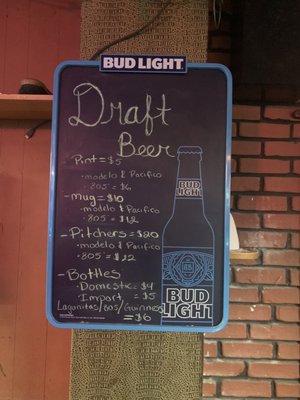 BUD LIGHT
Draft
Beer
Pint = $5
• modelo & Pacifico
• 805 = $6
- mug = $10
• modelo & Pacifico
• 805 = $12
- Pitchers = $20
• modelo & Pacifico
• 805 = $12
- Bottles
Domestic = $4
Import = $5
Lagunitas/805/Guinness
= $6
BUD
LIGHT
BUD
LIGHT